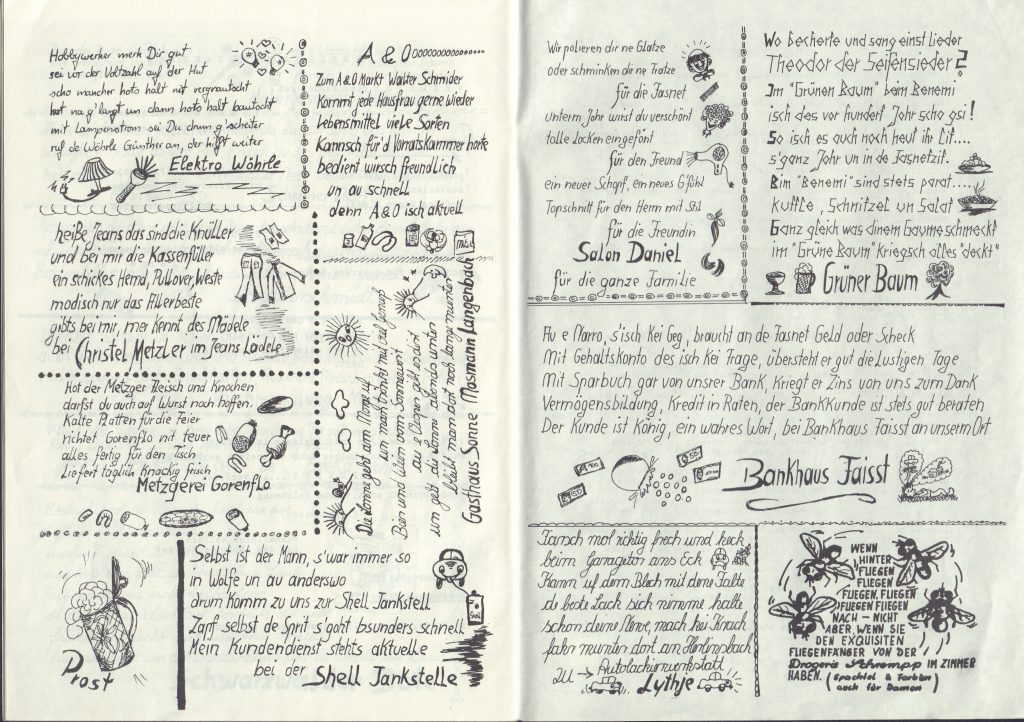 Hobbywerker merk Dir gut
sei vor der Voltzahl auf der Hut
scho mancher hots halt nit vergrautocht
hat na g'langt un dann hots halt bautscht
mit Lampenstrom sei Du drum g'scheiter
ruf de Wöhrle Günther an, der hilft weiter
Elektro Wöhrle
A & Ooooooooooooooo...
Zum A & O Markt Walter Schmider
Kommt jede Hausfrau gerne wieder
Lebensmittel viele Sorten
Kannsch für d'Vorratskammer horte
bedient wirsch freundlich
un au schnell
denn A & O isch aktuell
heiße Jeans das sind die Knüller
und bei mir die Kassenfüller
ein schickes Hemd, Pullover, Weste
modisch nur das Allerbeste
gibts bei mir, mer kennt des Mädele
bei Christel Metzler im Jeans Lädele
Hot der Metzger Fleisch und Knochen
darfst du auch auf Wurst noch hoffen.
Kalte Platten für die Feier
richtet Gorenflo nit teuer
alles fertig für den Tisch
Liefert täglich Knackig frisch
Metzgerei Gorenflo
Die Sonne geht am Morge uf
un mach
Bier und Wein vom Sonnewirt
au e Daner
un geht die Sonne abends unter
bleibt mein dort noch lange munter
Gasthaus Sonne Mosmann Langenbach
Prost
Selbst ist der Mann, s'war immer so
in Wolfe un au anderswo
drum Komm zu uns zur Shell Tankstell
Zapf selbst de Sprit s'goht bsunders schnell
Mein Kundendienst stehts aktuelle
bei der Shell Tankstelle
Wir polieren dir ne Glatze
oder schminken dir ne Fratze
für die Fasnet
unterm Johr wirst du verschönt
tolle Locken eingefönt
für den Freund
ein neuer Schopf, ein neues G'fühl
Topschnitt für den Herrn mit Stil
für die Freundin
Salon Daniel
für die ganze Familie
Wo becherte und sang einst Lieder
Theodor der Seifensieder?
Im "Grünen Baum" beim Benemi
isch des vor hundert Johr scho gsi!
So isch es auch noch heut ihr Lit....
s'ganz Johr un in de Fasnetzit.
Bim "Benemi" sind stets parat....
kuffle, Schnitzel un Salat
Ganz gleich was dinem Gaume schmeckt
im "Grüne Baum" Kriegsch alles "deckt"
Grüner Baum
Au e Narro, s'isch Kei Geg, braucht an de Fasnet Geld oder Scheck
Mit Gehaltskonto des isch Kei Frage, übersteht er gut die Lustigen Tage
Mit Sparbuch gar von unsrer Bank, Kriegt er Zins von uns zum Dank
Vermögensbildung, Kredit in Raten, der Bankkunde ist stets gut beraten
Der Kunde ist König, ein wahres Wort, bei Bankhaus Faisst an unserm Ort
Bankhaus Faisst
Farsch mol richtig frech und keck
beim Garagitor ans Eck
Kann uf dem Blech mit dene Falte
de beste Lack sich nimme halte
schon deine Nerve, mach kei Krach
fahr munter dort an Herlinsbach
zu → Autolackierwerkstatt
Lythje
WENN
HINTER
FLIEGEN
FLIEGEN
FLIEGEN, FLIEGEN
FLIEGEN FLIEGEN
NACH - NICHT
ABER, WENN SIE
DEN EXQUISITEN
FLIEGENFÄNGER VON DER
Drogerie Schrempp IM ZIMMER
HABEN. (Spachtel & Farben
auch für Damen)